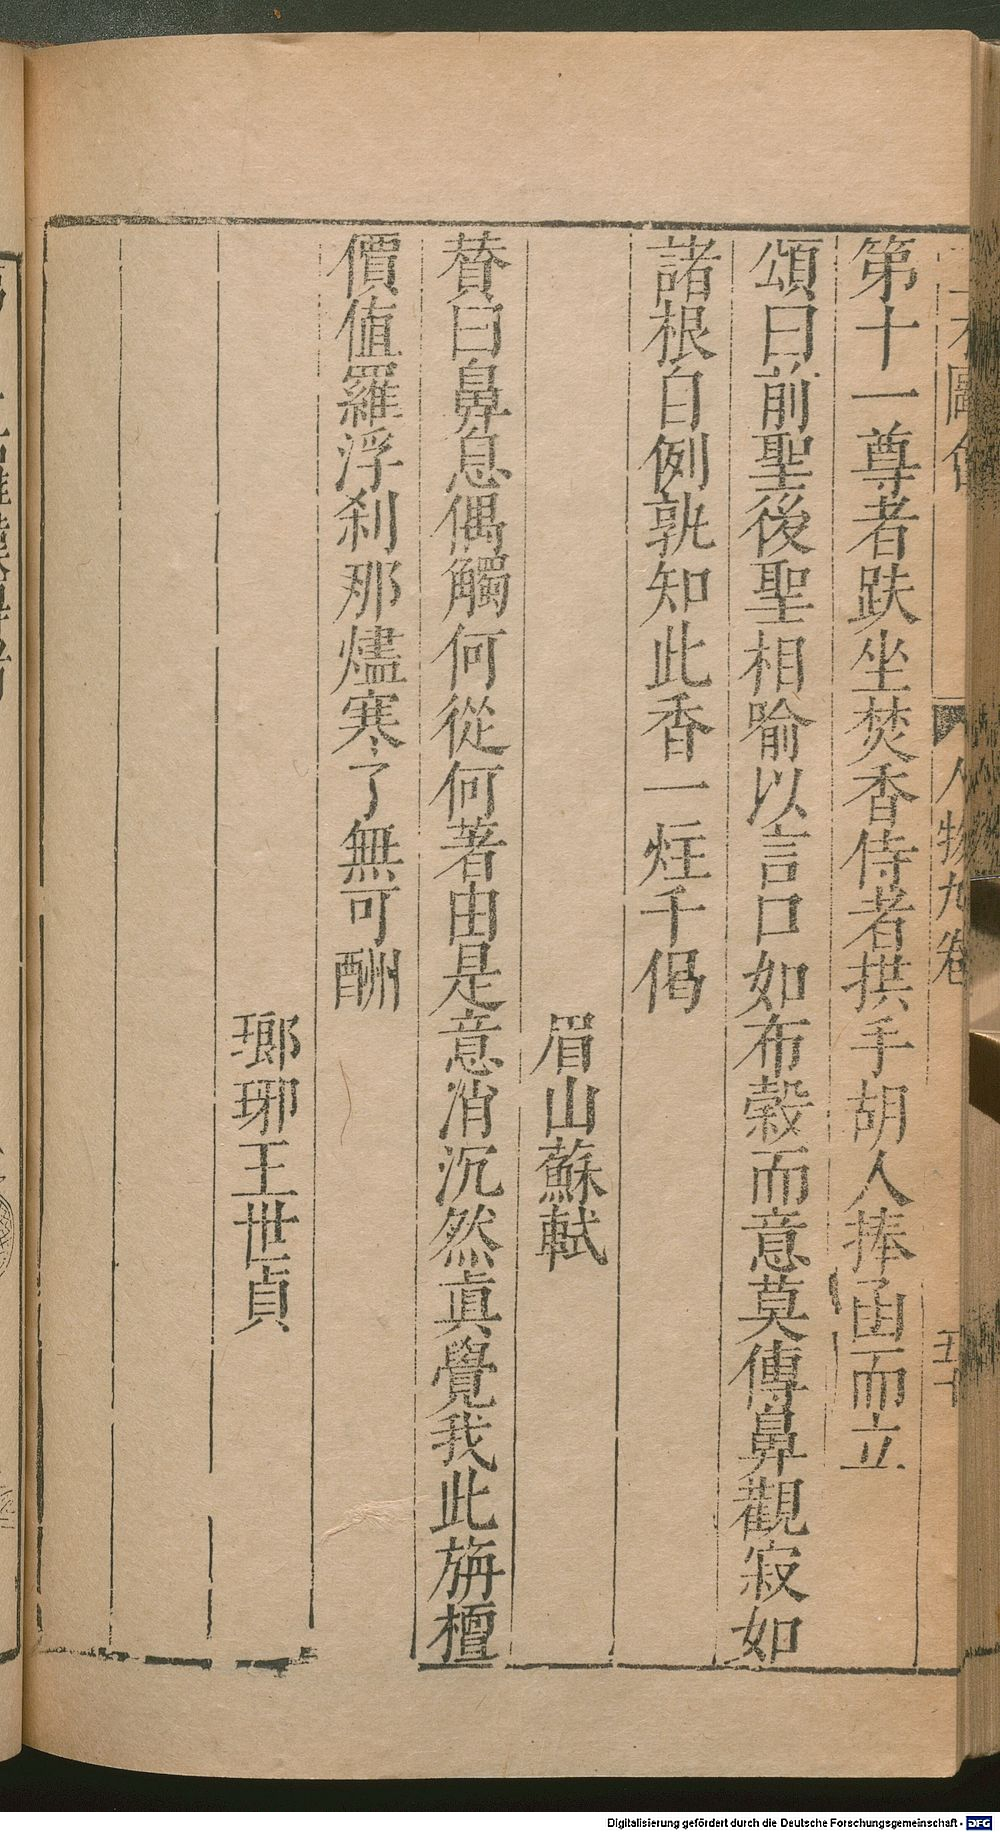 第十一尊者趺坐焚香侍者拱手胡人捧函而立
頌曰前聖後聖相喻以言口如布穀而意莫傳鼻觀寂如
諸根自例孰知此香一炷千偈
眉山蘇軾
賛曰鼻息偶觸何從何著由是意消沉然眞覺我此旃檀
價值羅浮刹那燼寒了無可酬
瑯琊王世貞
人物九卷
Digitalisierung gefördert durch die Deutsche Forschungsgemeinschaft - DFG